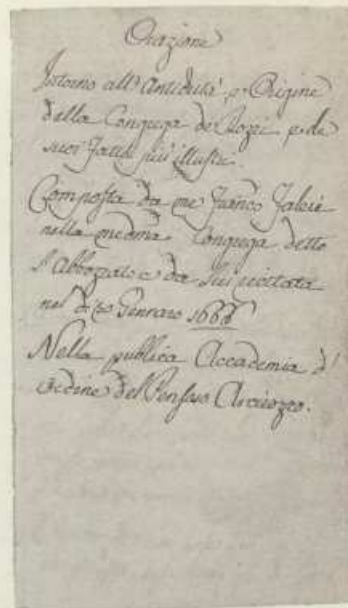 Orazione
Intorno all'Antichità, e Origine
della Congrega de Rozzi e de
suoi fatti più illustri.
Composta da me Franco
nella medma Congrega detto
l'Abbozzato e da lui recitata
nel dì 20 Gennaro 1666
Nella publica Accademia d'
ordine del Arcirozzo.